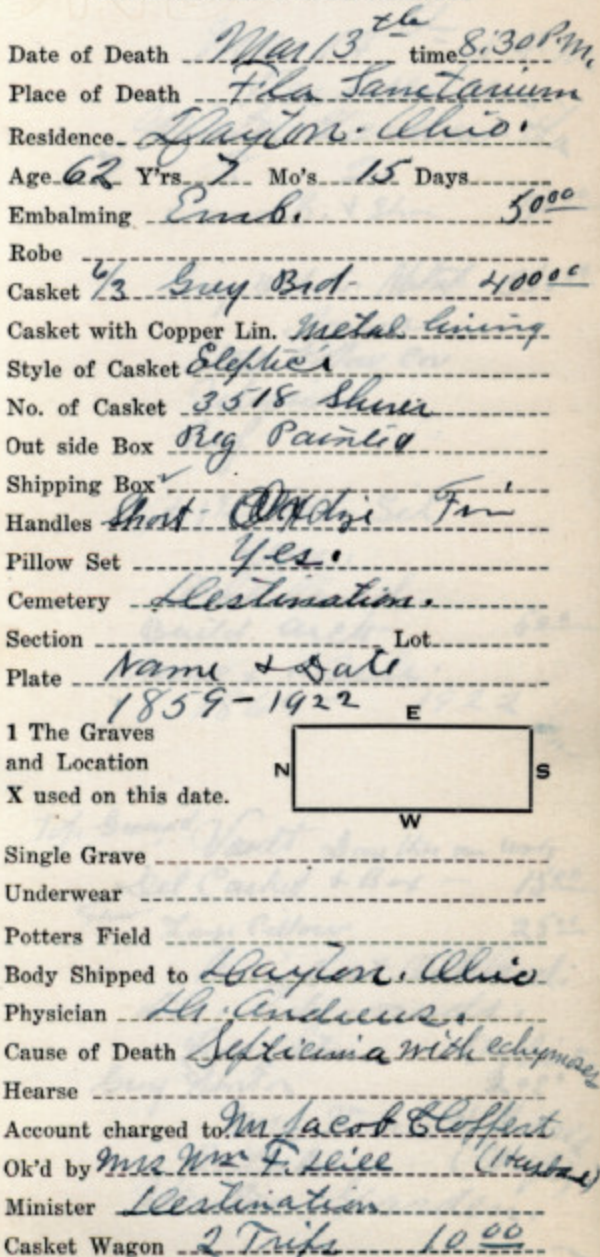 Date of Death Mar 13th time 8:30 P.M.
Place of Death Fla Sanitarium
Residence Dayton. Ohio.
Age 62 Y'rs 7 Mo's 15 Days
Embalming Emb. 50 00
Robe
Casket 6/3 Grey Brd- 400 00
Casket with Copper Lin. Metal lining
Style of Casket Eleptic
No. of Casket 3518
Out side Box Reg Painted
Shipping Box
Handles Short
Pillow Set Yes.
Cemetery Destination.
Section Lot
Plate Name & Date
1859-1922
E
1 The Graves
and Location
N S
X used on this date.
W
Single Grave
Underwear
Potters Field
Body Shipped to Dayton. Ohio
Physician Dr. Andrews.
Cause of Death Septicimia with
Hearse
Account charged to Mr Jacob
Ok'd by Mrs Wm F. (Husband)
Minister Destination
Casket Wagon 2 Trips 10 00